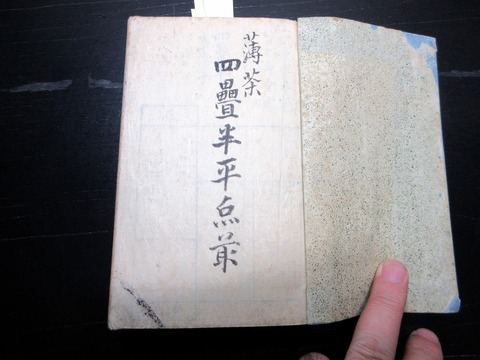 薄茶
四疊半平点前